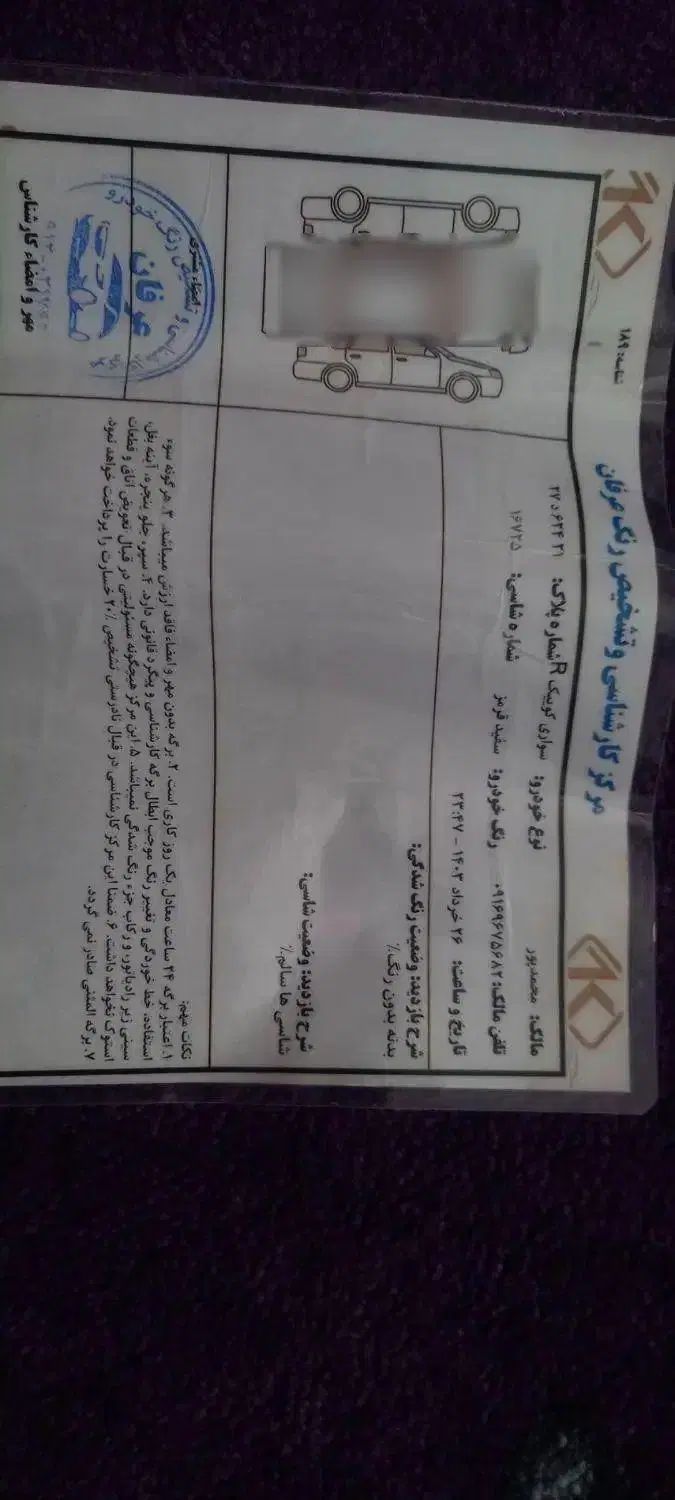 مرکز کارشناسی و تشخیص رنگ عرفان
شناسه: ۱۸۹
مالک: محمدپور
نوع خودرو: سواری کوییک R
شماره پلاک:
تلفن مالک: ۰۹۱۶۹۶۷۵۶۸۲
رنگ خودرو: سفید قرمز
شماره شاسی: ۱۶۷۲۵
تاریخ و ساعت: ۲۶ خرداد ۱۴۰۳ - ۲۳:۴۷
شرح بازدید: وضعیت رنگ شدگی:
بدنه بدون رنگ٪
شرح بازدید: وضعیت شاسی:
شاسی ها سالم٪
نکات مهم:
۱. اعتبار برگه ۲۴ ساعت معادل یک روز کاری است. ۲. برگه بدون مهر و امضاء فاقد ارزش میباشد. ۳. هرگونه سوء
استفاده، خط خوردگی و تغییر رنگ موجب ابطال برگه کارشناسی و پیگرد قانونی دارد. ۴. سپر، جلو پنجره، آینه بغل،
سینی زیر رادیاتور، و رکاب جزء رنگ شدگی نمیباشد. ۵. این مرکز هیچگونه مسئولیتی در قبال تعویض اتاق و قطعات
استوک نخواهد داشت. ۶. ضمنا این مرکز کارشناسی در قبال نادرستی تشخیص ۲۰٪ خسارت را پرداخت خواهد نمود.
۷. برگه المثنی صادر نمی گردد.
امضاء مشتری
عرفان
مهر و امضاء کارشناس